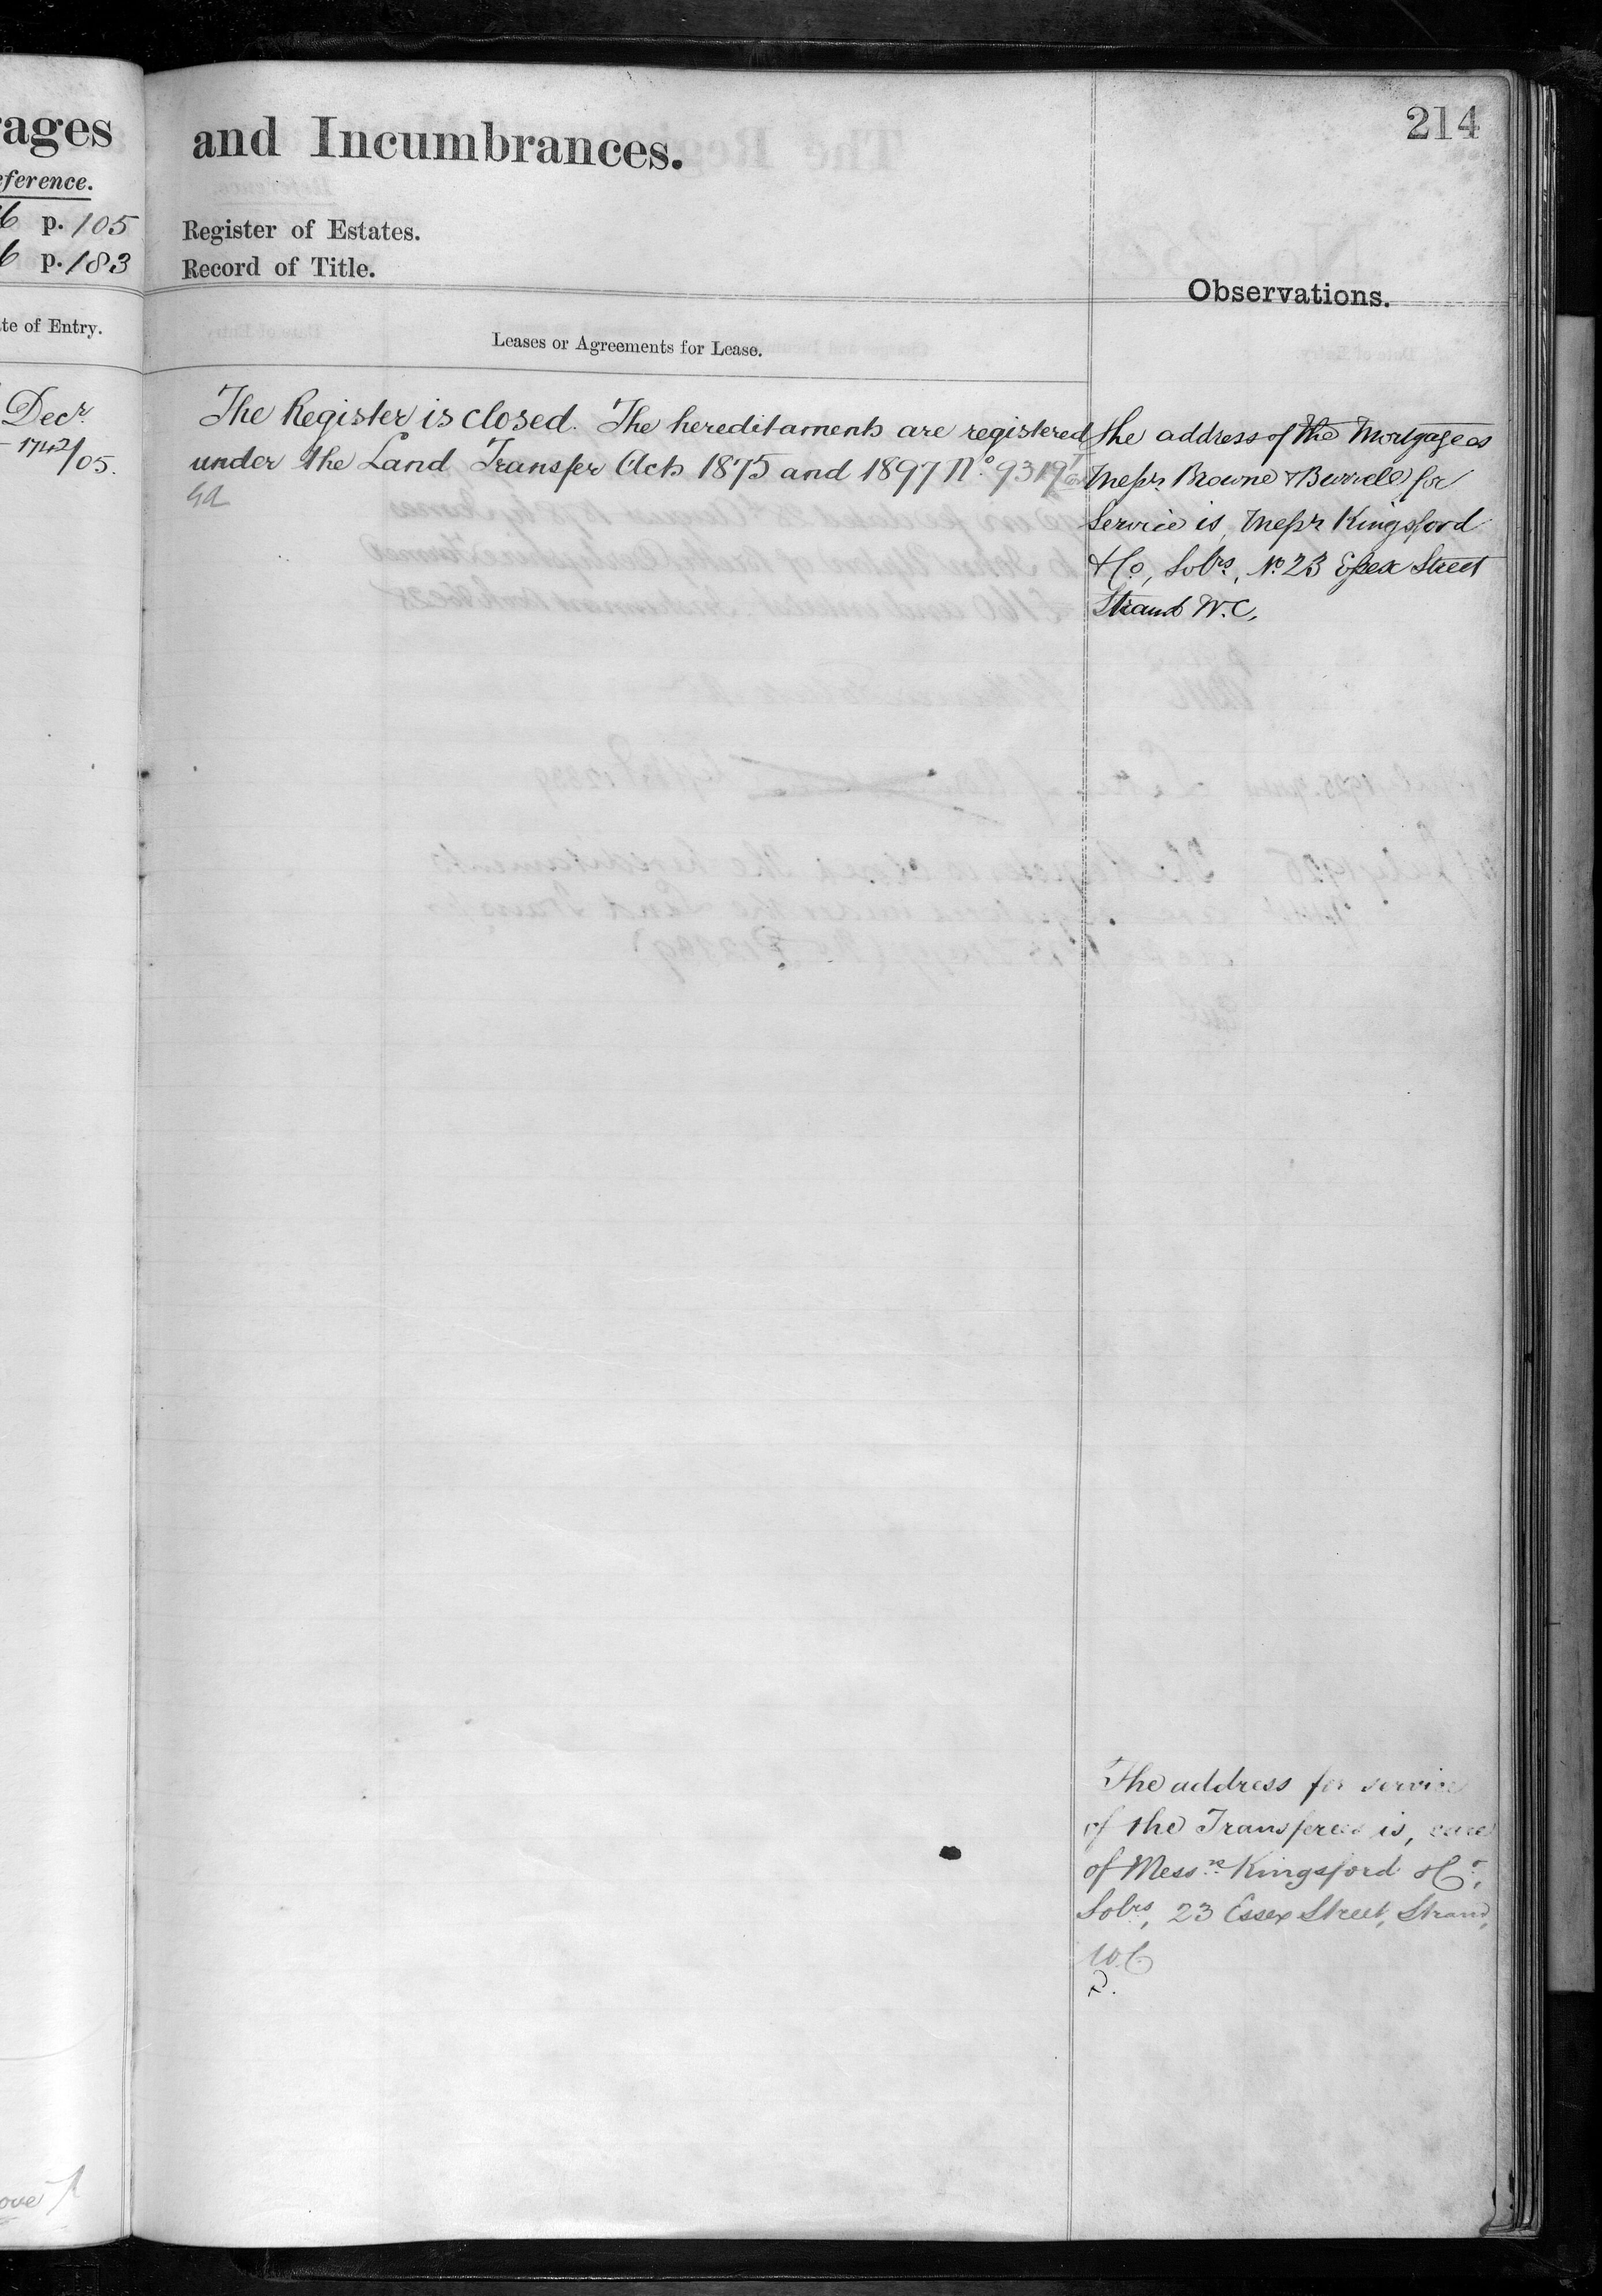 rages
eference.
6 p. 105
6 p. 183
te of Entry.
Decr.
1742/05.
ove
and Incumbrances.
214
Register of Estates.
Record of Title.
Observations.
Leases or Agreements for Lease.
The Register is closed. The hereditaments are registered
under the Land Transfer Acts 1875 and 1897 No. 93196
The address of the Mortgagees
Messrs. Browne & Burrell for
Service is, Messrs Kingsford
& Co, Solrs, No 23 Essex Street
Strand W.C.
The address for service
of the Transferees is, care
of Messrs. Kingsford & Co.,
Solrs, 23 Essex Street, Strand,
W.C